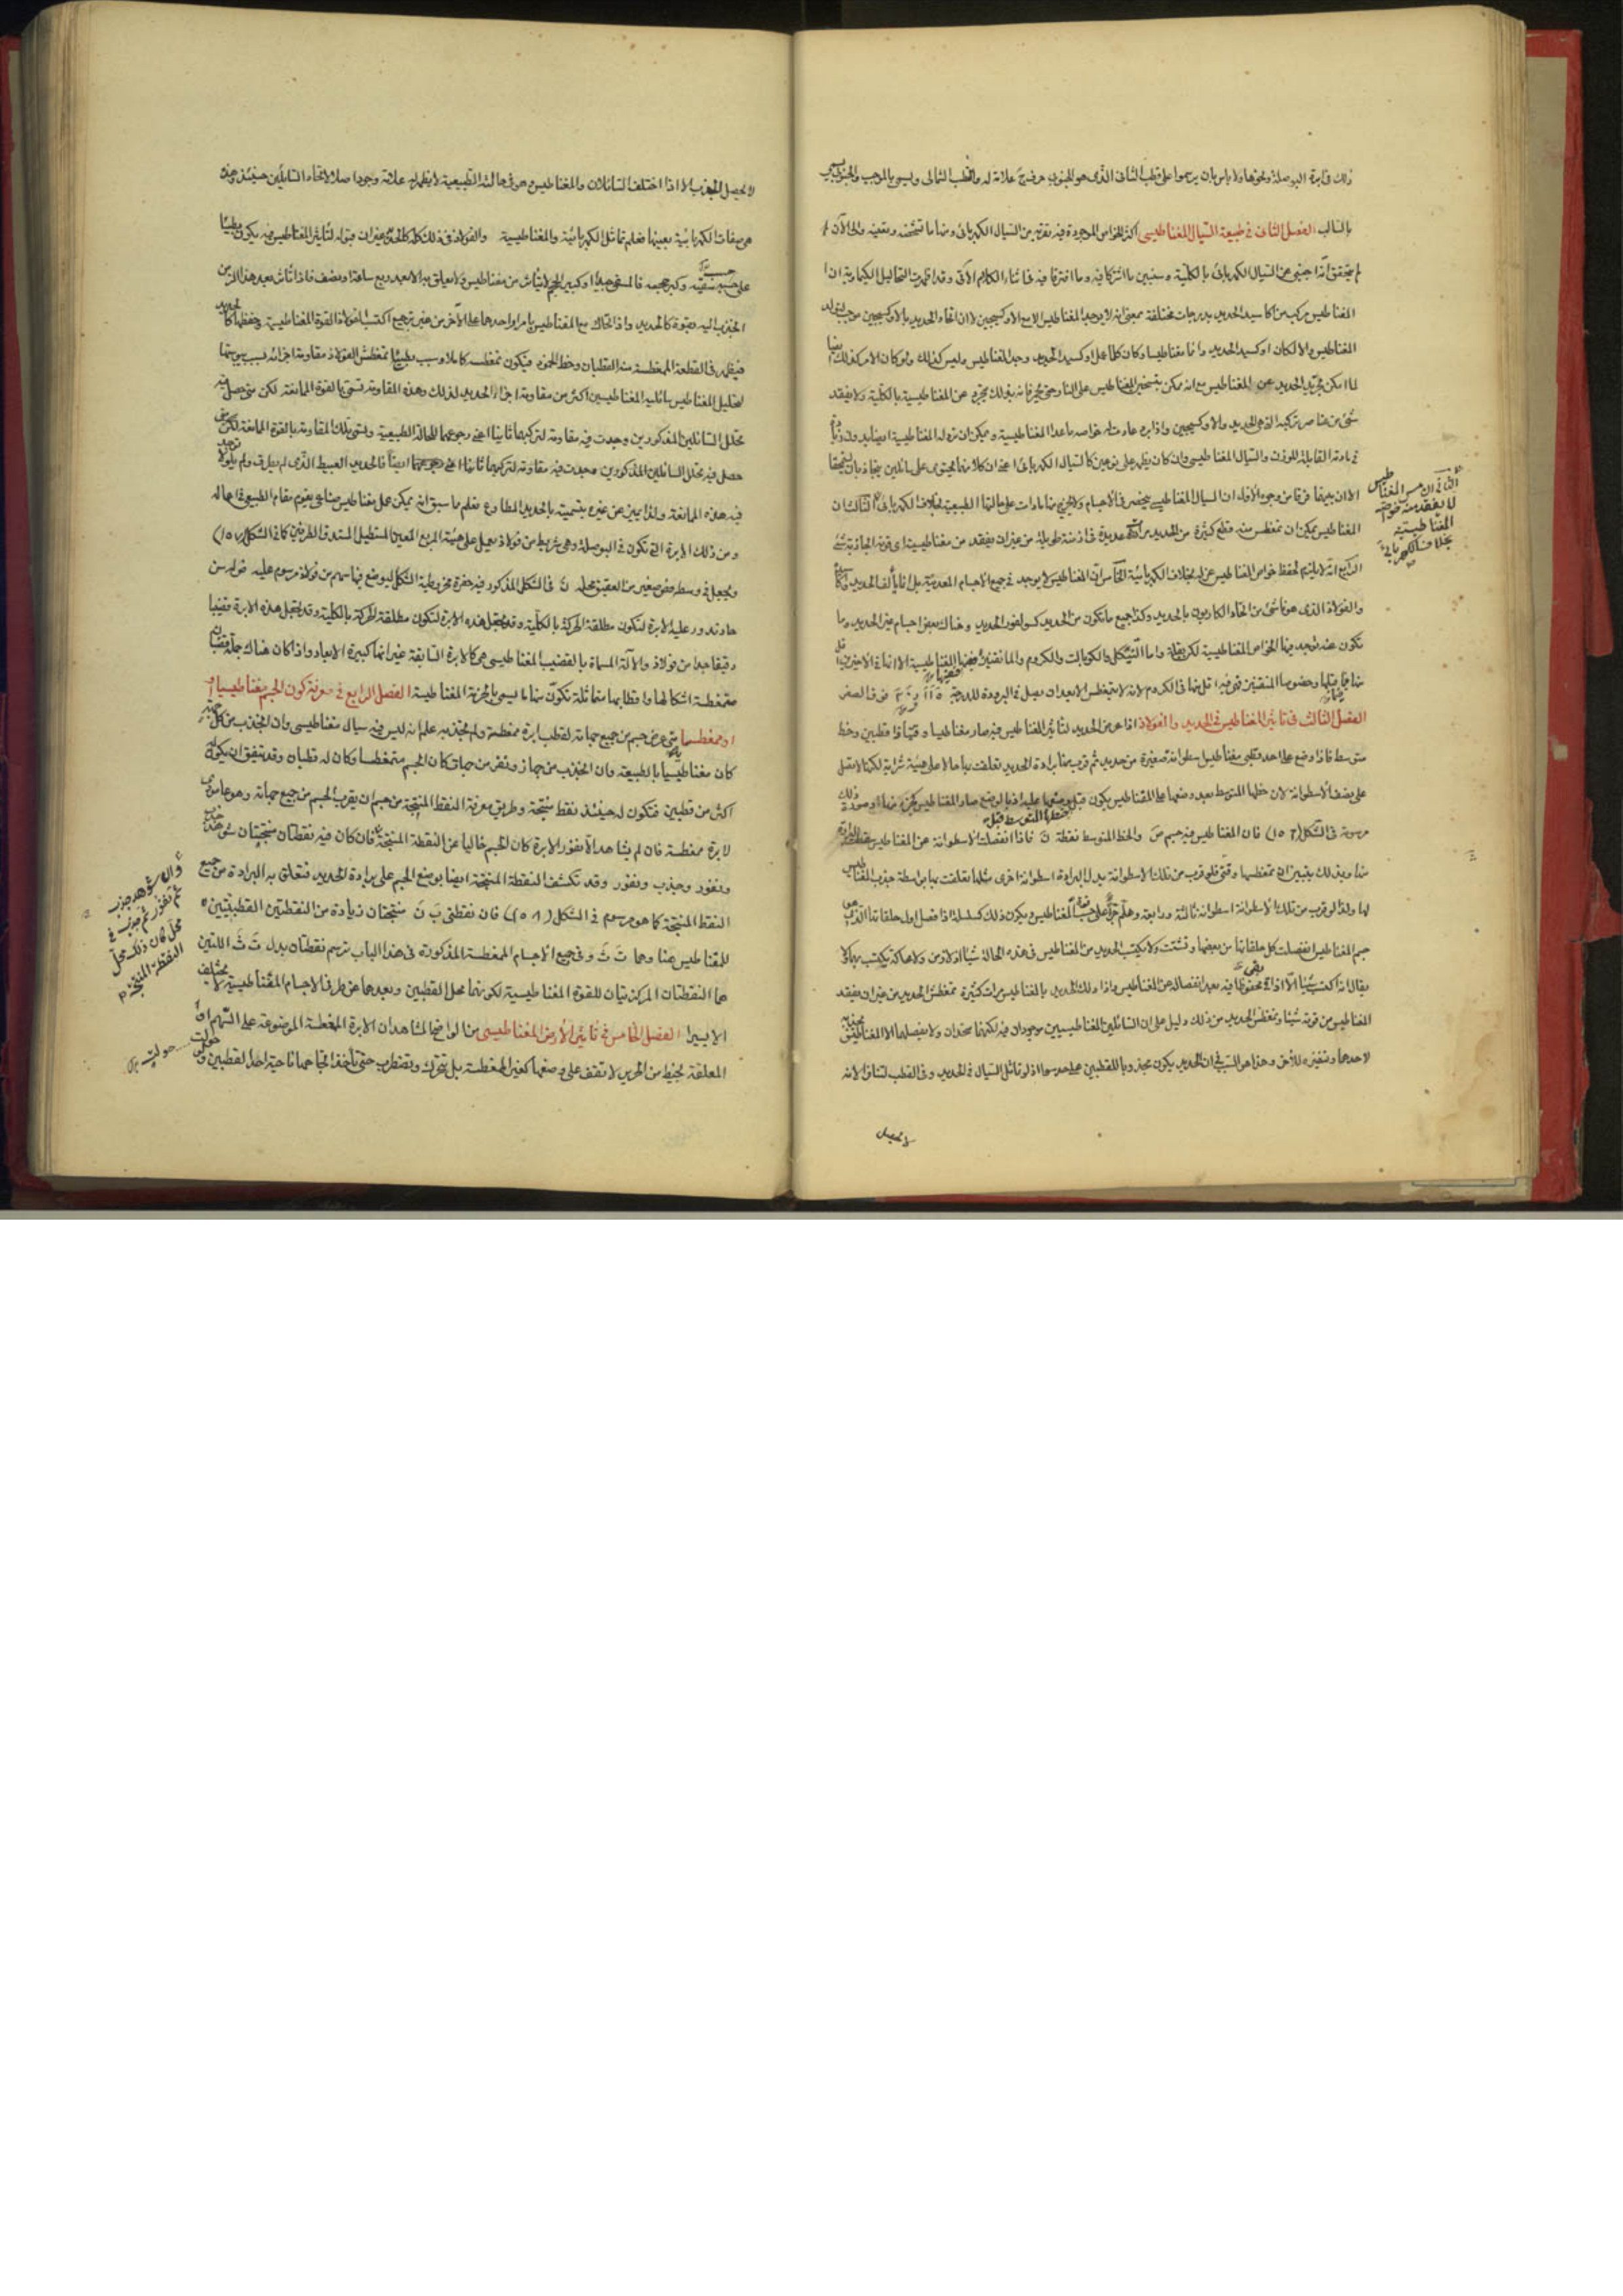 ذلك في ابرة البوصلة ونحوها ولا باس بان يرسموا على قطب الثاني الذي هو الجنوبي حرف ج علامة له والقطب الشمالي ويسمى بالموجب والجنوبي يسمى
بالسالب الفصل الثاني في طبيعة السيال المغناطيسي اكثر الخواص الموجودة فيه تقربه من السيال الكهربائي ومنها ما تشخصه وتعينه والى الآن لم
يتحقق انه اجنبي عن السيال الكهربائي بالكلية وسنبين ما اشتركا فيه وما افترقا فيه في اثناء الكلام الآتي وقد اظهرت التحاليل الكيماوية ان
المغناطيس مركب من اكاسيد الحديد بدرجات مختلفة بمعنى انه لا يوجد المغناطيس الا مع الاوكسيجين لا ان اتحاد الحديد بالاوكسيجين موجب لتولد
المغناطيس والا لكان اوكسيد الحديد دائما مغناطيسا وكان كلما على اوكسيد الحديد وجد المغناطيس وليس كذلك ولو كان الامر كذلك ايضا
لما امكن تجريد الحديد عن المغناطيس مع انه يمكن بتسخين المغناطيس على النار حتى يحمر فانه بذلك يتجرد عن المغناطيسية بالكلية ولا يفقد
شئ من عناصر تركيبه الذي هي الحديد والاوكسيجين واذا برد عادت له خواصه ما عدا المغناطيسية ويمكن ان تولد المغناطيسية ايضا
في مادته القابلة للوزن والسيال المغناطيسي وان كان يظهر على نوعين كالسيال الكهربائي اعني ان كلا منهما يحتوي على سائلين يتجاذبان
الا ان بينهما فرقا من وجوه الاول ان السيال المغناطيسي ينحصر في الاجسام ولا يخرج منها ما دامت على حالتها الطبيعية بخلاف الكهربائي الثالث ان
المغناطيس يمكن ان تمغطس منه قطع كثيرة من الحديد مرات عديدة في ازمنة طويلة من غير ان يفقد من مغناطيسية اي قوته الجاذبة شئ
الرابع انه لا يلزم لحفظ خواص المغناطيس عزله بخلاف الكهربائية الخامس ان المغناطيس لا يوجد في جميع الاجسام المعدنية بل انما يألف الحديد
والفولاذ الذي هو ناشئ من اتحاد الكاربون بالحديد وكذا جميع ما تكون من الحديد كسولفور الحديد وهناك بعض اجسام غير الحديد وما
تكون عنه توجد فيها الخواص المغناطيسية لكن بقلة واما النيكل والكوبالت والكروم والمانقنيز ففيها المغناطيسية الا انها في الاخيرين اقل
منها فيما قبلها وخصوصا المنقنيز فهي فيه اقل منها في الكروم لانه لا يتمغطس الا بعد ان يصل في البرودة للدرجة
الفصل الثالث في تاثير المغناطيس في الحديد والفولاذ اذا عرض الحديد لتاثير المغناطيس فيه صار مغناطيسا وقتيا ذا قطبين وخط
متوسط فاذا وضع على احد قطبي مغناطيس اسطوانة صغيرة من حديد ثم قرب منها برادة الحديد تعلقت بها حالا على هيئة شرابة لكنها لا تصل
على نصف الاسطوانة لان خطها المتوسط بعد وضعها على المغناطيس يكون
مرسومة في الشكل (١٥٦) فان المغناطيس فيه جسم ض والخط المتوسط نقطة ن فاذا انفصلت الاسطوانة عن المغناطيس
منها وبذلك يتبين ان تمغطسها وقتي فلو قرب من تلك الاسطوانة بدل البرادة اسطوانة اخرى مثلها تعلقت بها بواسطة جذب المغناطيس
لها ولذا لو قرب من تلك الاسطوانة اسطوانة ثالثة ورابعة وهلم جرا على حسب قوة المغناطيس ويكون ذلك كسلسلة اذا فصل اول حلقاتها
جسم المغناطيس انفصلت كل حلقاتها من بعضها وتشتت ولا يكتسب الحديد من المغناطيس في هذه الحالة شيئا
يقال انه اكتسب شيئا الا اذا بقي محفوظا فيه بعد انفصاله عن المغناطيس واذا دلك الحديد بالمغناطيس مرات كثيرة تمغطس الحديد من غير ان يفقد
المغناطيس من قوته شيئا وتمغطس الحديد من ذلك دليل على ان السائلين المغناطيسيين موجودان فيه لكنهما متحدان ولا يفصلهما الا المغناطيس بجذبه
لاحدهما وتنفيره للآخر وهذا هو السبب في ان الحديد يكون مجذوبا للقطبين على حد سواء اذ لو تماثل السيال في الحديد وفي القطب لتنافرا لانه
لا يحصل
الثاني ان المغناطيس
لا يفقد منه خواصه
المغناطيسية
بخلاف الكهربائي
لا يحصل الجذب الا اذا اختلف السائلان والمغناطيس وهو في حالته الطبيعية لا يظهر له علامة وجود اصلا لاتحاد السائلين حينئذ وهذه
هي صفات الكهربائية بعينها فعلم تماثل الكهربائية والمغناطيسية والفولاذ في ذلك كله كالحديد غير ان قبوله لتاثير المغناطيس فيه يكون بطيئا
على حسب سقيه وكبر حجمه فالمسقي جيدا وكبير الحجم لا يتأثر من مغناطيس ولا يعلق به الا بعد ربع ساعة او نصف فاذا تأثر بعد هذا الزمن
انجذب اليه بقوة كالحديد واذا حك مع المغناطيس بامرار احدهما على الآخر من غير ترجيع اكتسب الفولاذ القوة المغناطيسية وحفظها كالحديد
فيظهر في القطعة الممغطسة منه القطبان وخط الخمود فيكون تمغطسه كاملا وسبب بطئ تمغطس الفولاذ مقاومة اجزائه بسبب يبوستها
لتحليل المغناطيس سائليه المغناطيسيين اكثر من مقاومة اجزاء الحديد لذلك وهذه المقاومة تسمى بالقوة الممانعة لكن متى حصل فيه
تحلل السائلين المذكورين وجدت فيه مقاومة لتركيبهما ثانيا اعني رجوعهما للحالة الطبيعية وتسمى تلك المقاومة بالقوة الممانعة لكن متى
حصل فيه تحلل السائلين المذكورين وجدت فيه مقاومة لتركيبهما ثانيا اعني رجوعهما ايضا فالحديد العبيط الذي لم يطرق ولم يلو لا توجد
فيه هذه الممانعة ولذا يميز عن غيره بتسميته بالحديد المطاوع فعلم ما سبق انه يمكن عمل مغناطيس صناعي يقوم مقام الطبيعي في اعماله
ومن ذلك الابرة التي تكون في البوصلة وهي شريط من فولاذ يعمل على هيئة المربع المعين المستطيل المستدق الطرفين كما في الشكل (١٥٧)
ويجعل في وسطه فص صغير من العقيق محله ن في الشكل المذكور فيه حفرة مخروطية الشكل ليوضع فيها سهم من فولاذ مرسوم عليه ض له سن
حاد تدور عليه الابرة لتكون مطلقة الحركة بالكلية وقد يجعل هذه الابرة لتكون مطلقة الحركة بالكلية وقد يجعل هذه الابرة قضيبا
دقيقا جدا من فولاذ والآلة المسماة بالقضيب المغناطيسي هي كالابرة السابقة غير انها كبيرة الابعاد واذا كان هناك جملة قضبان
متمغطسة اشكالها واقطابها متماثلة تكون منها ما يسمى بالحزمة المغناطيسية الفصل الرابع في معرفة كون الجسم مغناطيسيا
او ممغطسا متى عرض جسم من جميع جهاته لقطب ابرة ممغطسة ولم يجذبه علم انه ليس فيه سيال مغناطيسي وان انجذب من كل جهة
كان مغناطيسيا بالطبيعة وان انجذب من جهة ونفر من جهة كان الجسم متمغطسا وكان له قطبان وقد يتفق ان يكون له
اكثر من قطبين فتكون له حينئذ نقط منتجة وطريق معرفة النقط المنتجة من جسم ان يقرب الجسم من جميع جهاته وهو عامودي
لابرة ممغطسة فان لم يشاهد الا نفور الابرة كان الجسم خاليا عن النقطة المنتجة فان كان فيه نقطتان منتجتان شوهد جذب
ونفور وجذب ونفور وقد تكشف النقطة المنتجة ايضا بوضع الجسم على برادة الحديد فتعلق به البرادة من جميع
النقط المنتجة كما هو مرسوم في الشكل (١٥٨) فان نقطتي ب ن منتجتان زيادة من النقطتين القطبيتين
للمغناطيس هنا وهما ت ث وفي جميع الاجسام الممغطسة المذكورة في هذا الباب ترسم نقطتان بدل ت ث اللتين
هما النقطتان المركزيتان للقوة المغناطيسية لكونهما محل القطبين وبعدهما عن طرفي الاجسام المغناطيسية لا يختلف
الا يسيرا الفصل الخامس في تاثير الارض المغناطيسي من الواضح المشاهد ان الابرة الممغطسة الموضوعة على السهم او
المعلقة بخيط من الحرير لا تقف على وضعها كغير الممغطسة بل تتحرك وتضطرب حتى تأخذ اتجاهها ناحية احد القطبين
وان شوهد جذب
ثم نفور ثم جذب في
محل كان ذلك محل
النقطة المنتجة